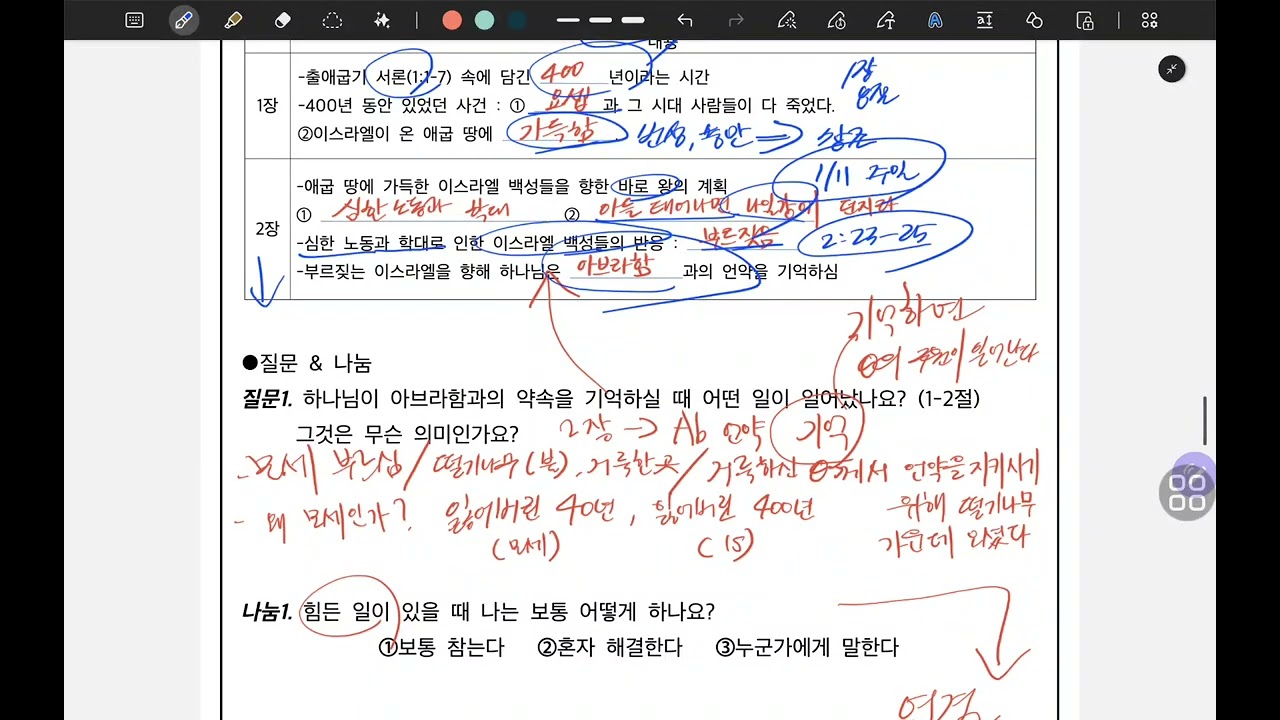 내용
1장
-출애굽기 서론(1:1-7) 속에 담긴 400 년이라는 시간
1장
8절
-400년 동안 있었던 사건 : ① 요셉 과 그 시대 사람들이 다 죽었다.
②이스라엘이 온 애굽 땅에 가득함 번성, 충만 ⇒
2장
-애굽 땅에 가득한 이스라엘 백성들을 향한 바로 왕의 계획
1/11 주일
① 심한 노동과 학대 ② 아들 태어나면 나일강에 던지라
-심한 노동과 학대로 인한 이스라엘 백성들의 반응 : 부르짖음 2:23-25
-부르짖는 이스라엘을 향해 하나님은 아브라함 과의 언약을 기억하심
기억하면
일어난다
●질문 & 나눔
질문1. 하나님이 아브라함과의 약속을 기억하실 때 어떤 일이 일어났나요? (1-2절)
그것은 무슨 의미인가요? 2장 → Ab 언약 기억
- 모세 부르심 / 떨기나무(불), 거룩한 곳 / 거룩하신 께서 언약을 지키시기
위해 떨기나무
가운데 오셨다
- 왜 모세인가? 잃어버린 40년, 잃어버린 400년
(모세) (IS)
나눔1. 힘든 일이 있을 때 나는 보통 어떻게 하나요?
①보통 참는다 ②혼자 해결한다 ③누군가에게 말한다